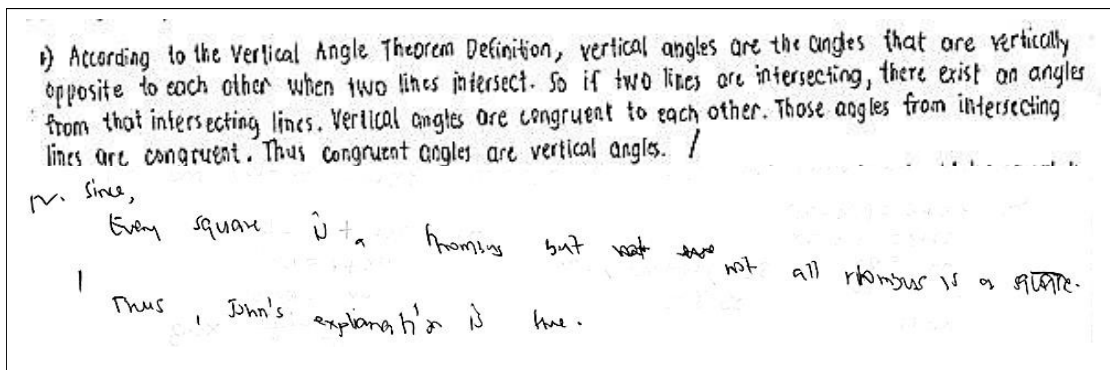 1) According to the Vertical Angle Theorem Definition, vertical angles are the angles that are vertically
opposite to each other when two lines intersect. So if two lines are intersecting, there exist an angles
from that intersecting lines. Vertical angles are congruent to each other. Those angles from intersecting
lines are congruent. Thus congruent angles are vertical angles. /
IV. Since,
Every square is a rhombus but not all rhombus is a square.
1
Thus, John's explanation is true.